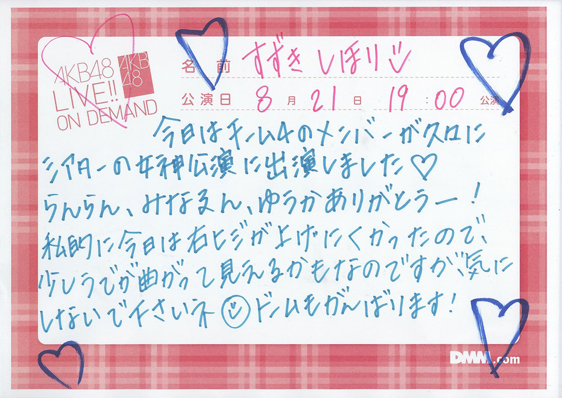 AKB48
LIVE!!
ON DEMAND
AKB
48
名前 すずきしほり
公演日 8月21日 19:00公演
今日はチーム4のメンバーが久々に
シアターの女神公演に出演しました♡
らんらん、みなるん、ゆうかありがとうー!
私的に今日は右ヒジが上げにくかったので、
少しうでが曲がって見えるかもなのですが、気に
しないで下さいネ ドームもがんばります!
DMM.com